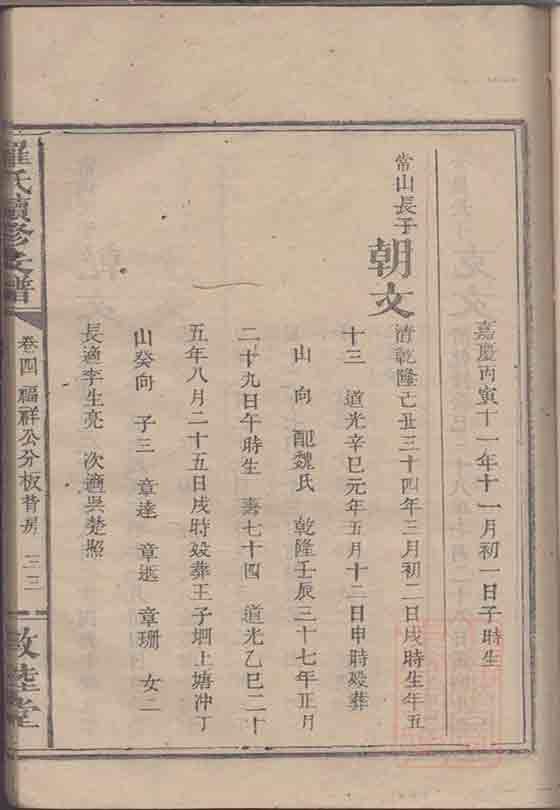 嘉慶丙寅十一年十一月初一日子時生
常山長子
朝文
清乾隆己丑三十四年三月初二日戌時生年五
十三 道光辛巳元年五月十二日申時歿葬
山 向 配魏氏 乾隆壬辰三十七年正月
二十九日午時生 壽七十四 道光乙巳二十
五年八月二十五日戌時歿葬王子垇上塘冲丁
山癸向 子三 章達 章逛 章珊 女二
長適李生亮 次適吳楚照
羅氏續修支譜
卷四 福祥公分板背房 三三
敦睦堂